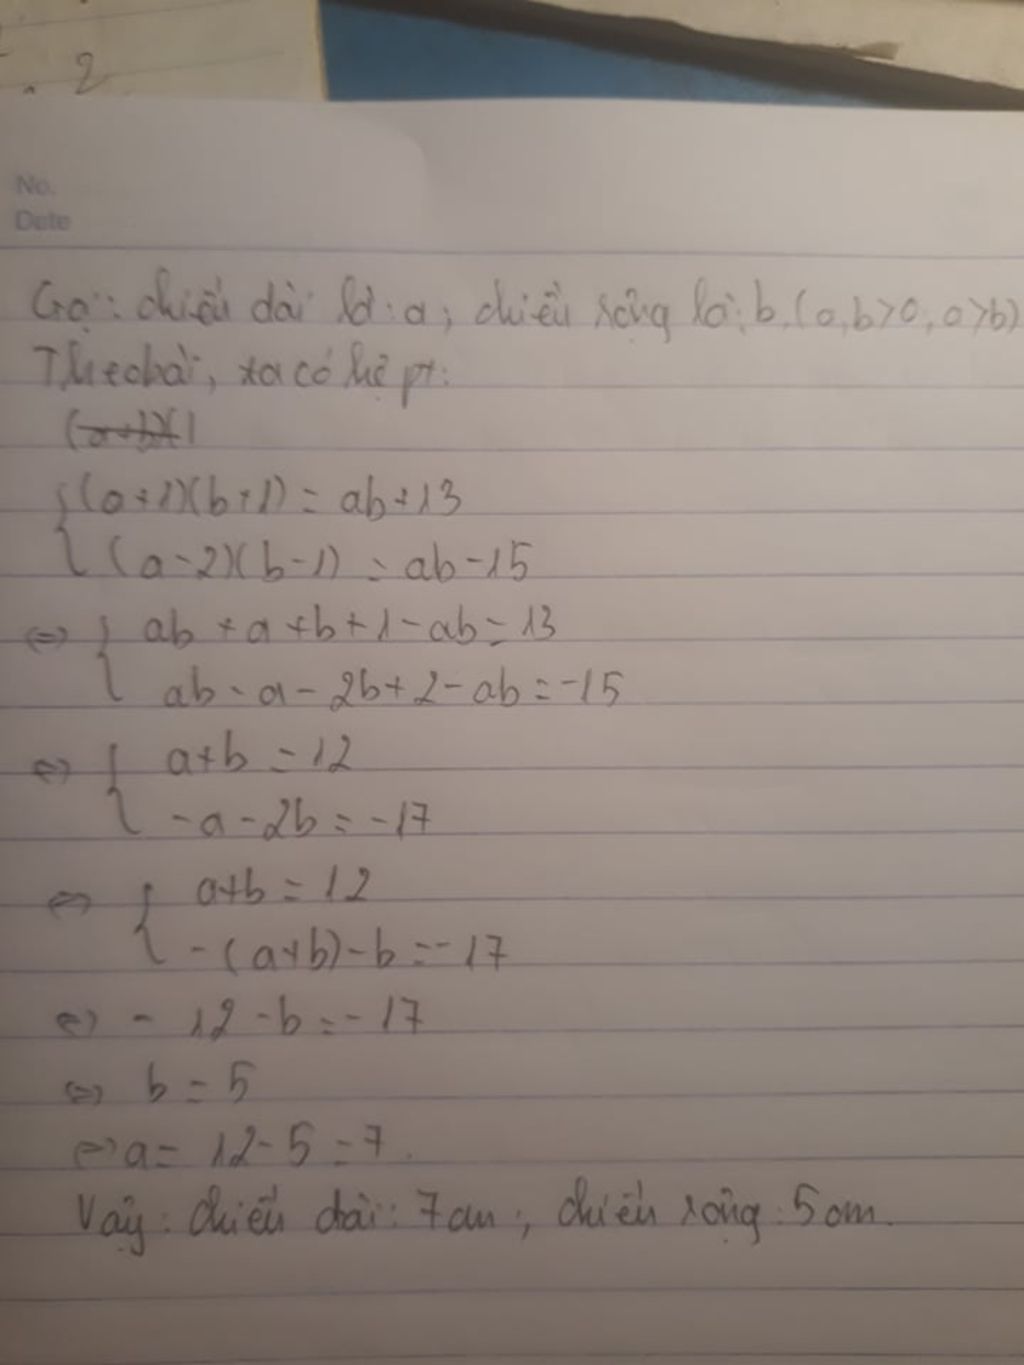 2
No.
Date
Gọi: chiều dài là: a; chiều rộng là: b. (a,b>0, a>b)
Theo bài, ta có hệ pt:
{ (a+1)(b+1) = ab+13
(a-2)(b-1) = ab-15
⇔ { ab + a + b + 1 - ab = 13
ab - a - 2b + 2 - ab = -15
⇔ { a+b = 12
-a - 2b = -17
⇔ { a+b = 12
-(a+b) - b = -17
⇔ - 12 - b = - 17
⇔ b = 5
⇔ a = 12 - 5 = 7.
Vậy: chiều dài: 7cm; chiều rộng: 5cm.